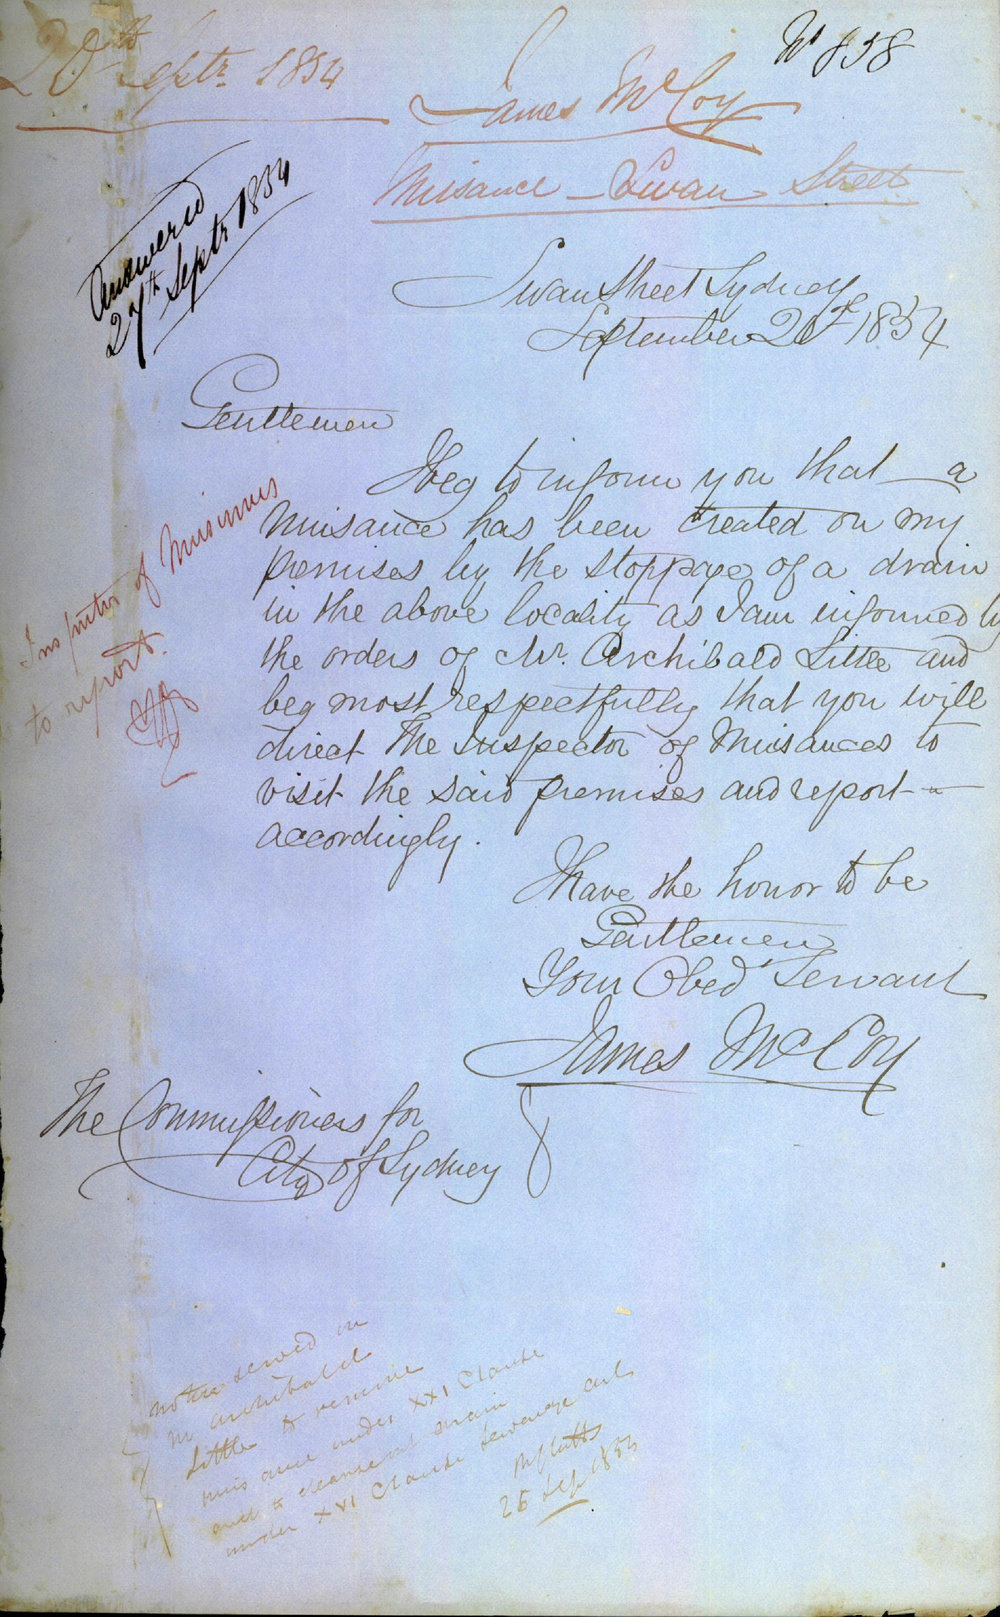 20th Septr. 1854
No 858
James McCoy
Nuisance - Swan Street
Answered
27th Septr 1854
Swan Street Sydney
September 20th 1854
Gentlemen
I beg to inform you that a
Nuisance has been created on my
premises by the stoppage of a drain
in the above locality as I am informed by
the orders of Mr. Archibald Little and
beg most respectfully that you will
direct the Inspector of Nuisances to
visit the said premises and report
accordingly.
Inspector of Nuisances
to report.
I have the honor to be
Gentlemen
Your Obed Servant
James McCoy
The Commissioners for
City of Sydney
notice served on
Mr Archibald
Little to remove
nuisance under XXI Clause
and to cleanse drain
under XVI Clause Sewerage Act
25 Sep 1854